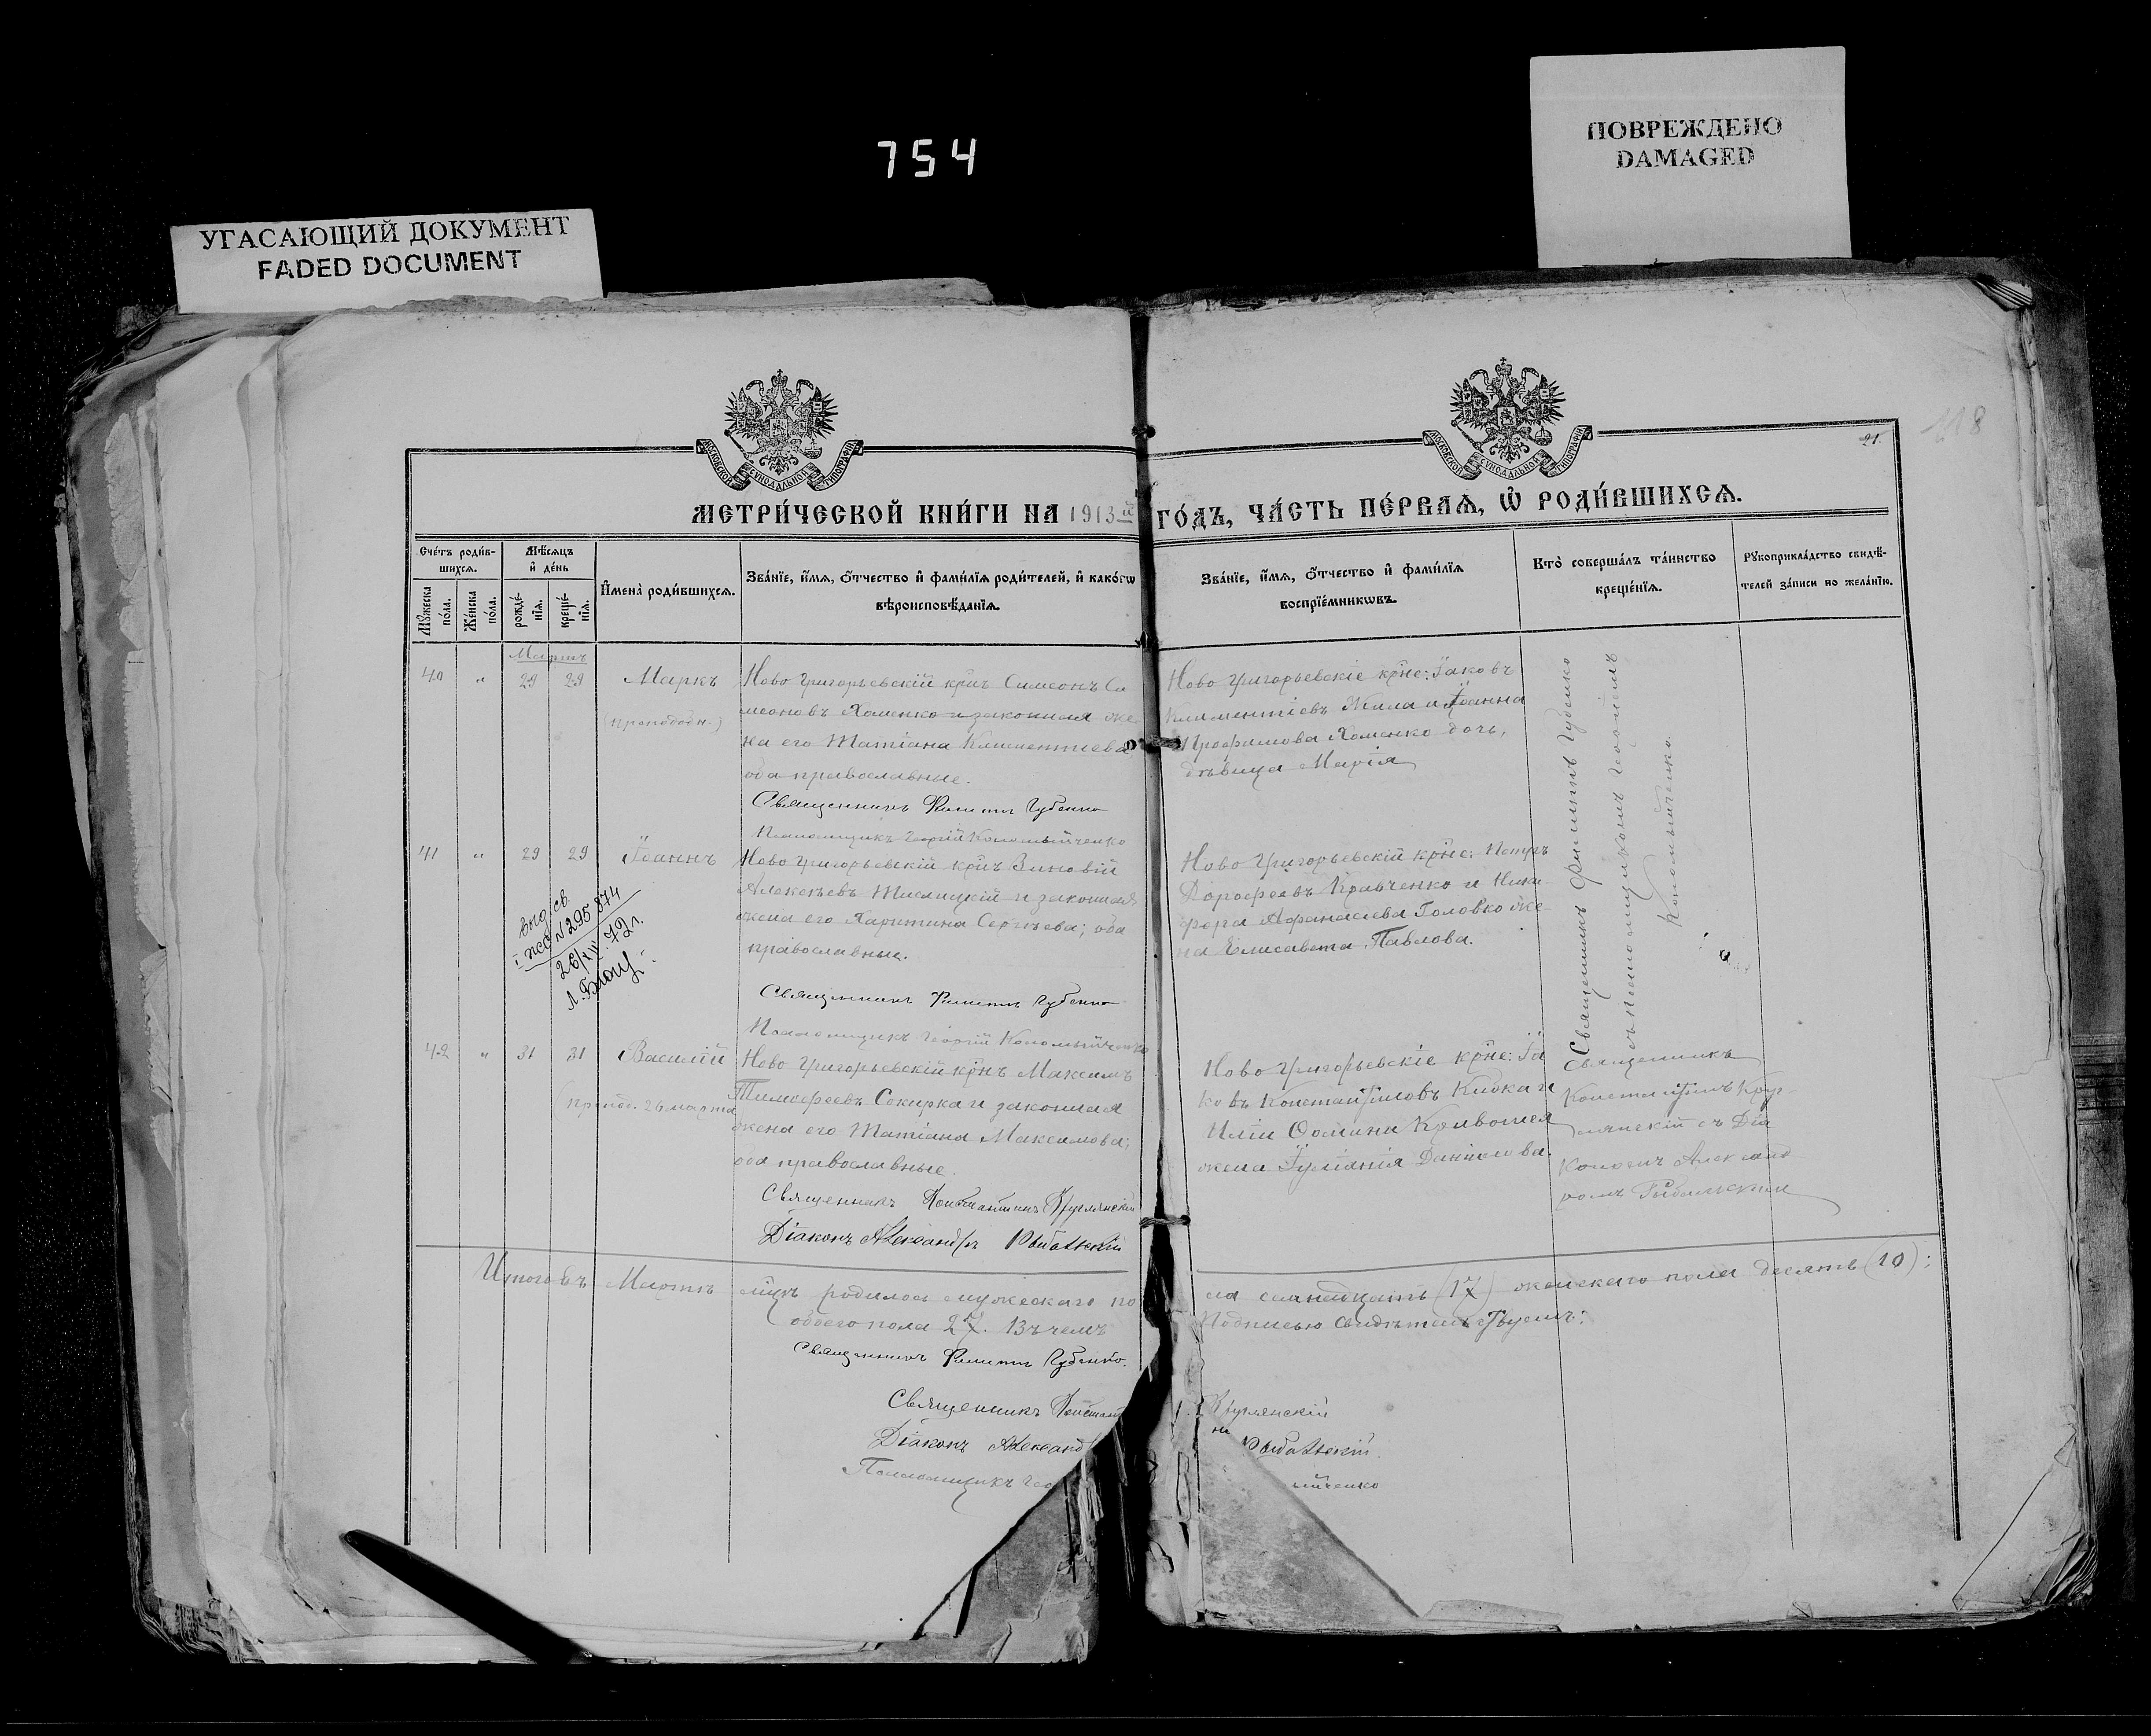 754
ПОВРЕЖДЕНО
DAMAGED
УГАСАЮЩИЙ ДОКУМЕНТ
FADED DOCUMENT
МОСКОВСКОЙ СѴНОДАЛЬНОЙ ТИПОГРАФІИ
МОСКОВСКОЙ СѴНОДАЛЬНОЙ ТИПОГРАФІИ
118
21.
МЕТРИ́ЧЕСКОЙ КНИ́ГИ НА 1913й ГО́ДЪ, ЧА́СТЬ ПЕ́РВАЯ, Ѡ҆ РОДИ́ВШИХСЯ.
Сче́тъ роди́в-
шихся.
Мѣ́сяцъ
и҆ де́нь
Мꙋ́жеска по́ла.
Же́нска по́ла.
рожде́-
нїя.
креще́-
нїя.
И҆мена̀ роди́вшихся.
Зва́нїе, и҆́мя, ѻ҆́тчество и҆ фами́лїя роди́телей, и҆ како́гѡ
вѣроисповѣ́данїя.
Зва́нїе, и҆́мя, ѻ҆́тчество и҆ фами́лїя
воспрїе́мникѡвъ.
Кто̀ соверша́лъ та́инство
креще́нїя.
Рꙋкоприкла́дство свидѣ́-
телей за́писи по жела́нїю.
Мартъ
40 " 29 29 Маркъ
(преподобн.)
Ново Григорьевскій крнъ Симеонъ Си
меоновъ Хоменко и законная же
на его Татіана Климентіева
оба православные.
Священникъ Филиппъ Губенко
Псаломщикъ Георгій Коломыйченко
Ново Григорьевскіе крне: Іаковъ
Климентіевъ Жила и Іоанна
Трофимова Хоменко дочь,
дѣвица Марія
Священникъ Филиппъ Губенко
съ псаломщикомъ Георгіемъ
Коломыйченко.
41 " 29 29 Іоаннъ
Ново Григорьевскій крнъ Зиновій
Алексѣевъ и законная
жена его Харитина Сергѣева; оба
православные.
Священникъ Филиппъ Губенко
Псаломщикъ Георгій Коломыйченко
Ново Григорьевскій крне: Петръ
Дорофеевъ Кравченко и Ники
фора Афанасіева Головко же
на Елисавета Павлова.
выд. св.
I ЖС № 295874
26/IV.72г.
42 " 31 31 Василій
(препод. 26 марта
Ново Григорьевскій крнъ Максимъ
Тимофеевъ Сокирка и законная
жена его Татіана Максимова;
оба православные.
Священникъ Константинъ Круглянскій
Діаконъ Александръ Рыбальскій
Ново Григорьевскіе крне: Іа
ковъ Константиновъ и
Иліи Ѳомина Кривошея
жена Іуліанія Даніилова.
Священникъ
Константинъ Круг
лянскій съ Діа
кономъ Александ
ромъ Рыбальскимъ
Итого въ Мартѣ мцѣ родилось мужескаго по
ла семнадцать (17) женскаго пола десять (10);
обоего пола 27. Въ чемъ
подписью свидѣтельствуемъ:
Священникъ Филиппъ Губенко.
Священникъ Констант
Круглянскій
Діаконъ Александ
Рыбальскій
Псаломщикъ Гео
ыйченко